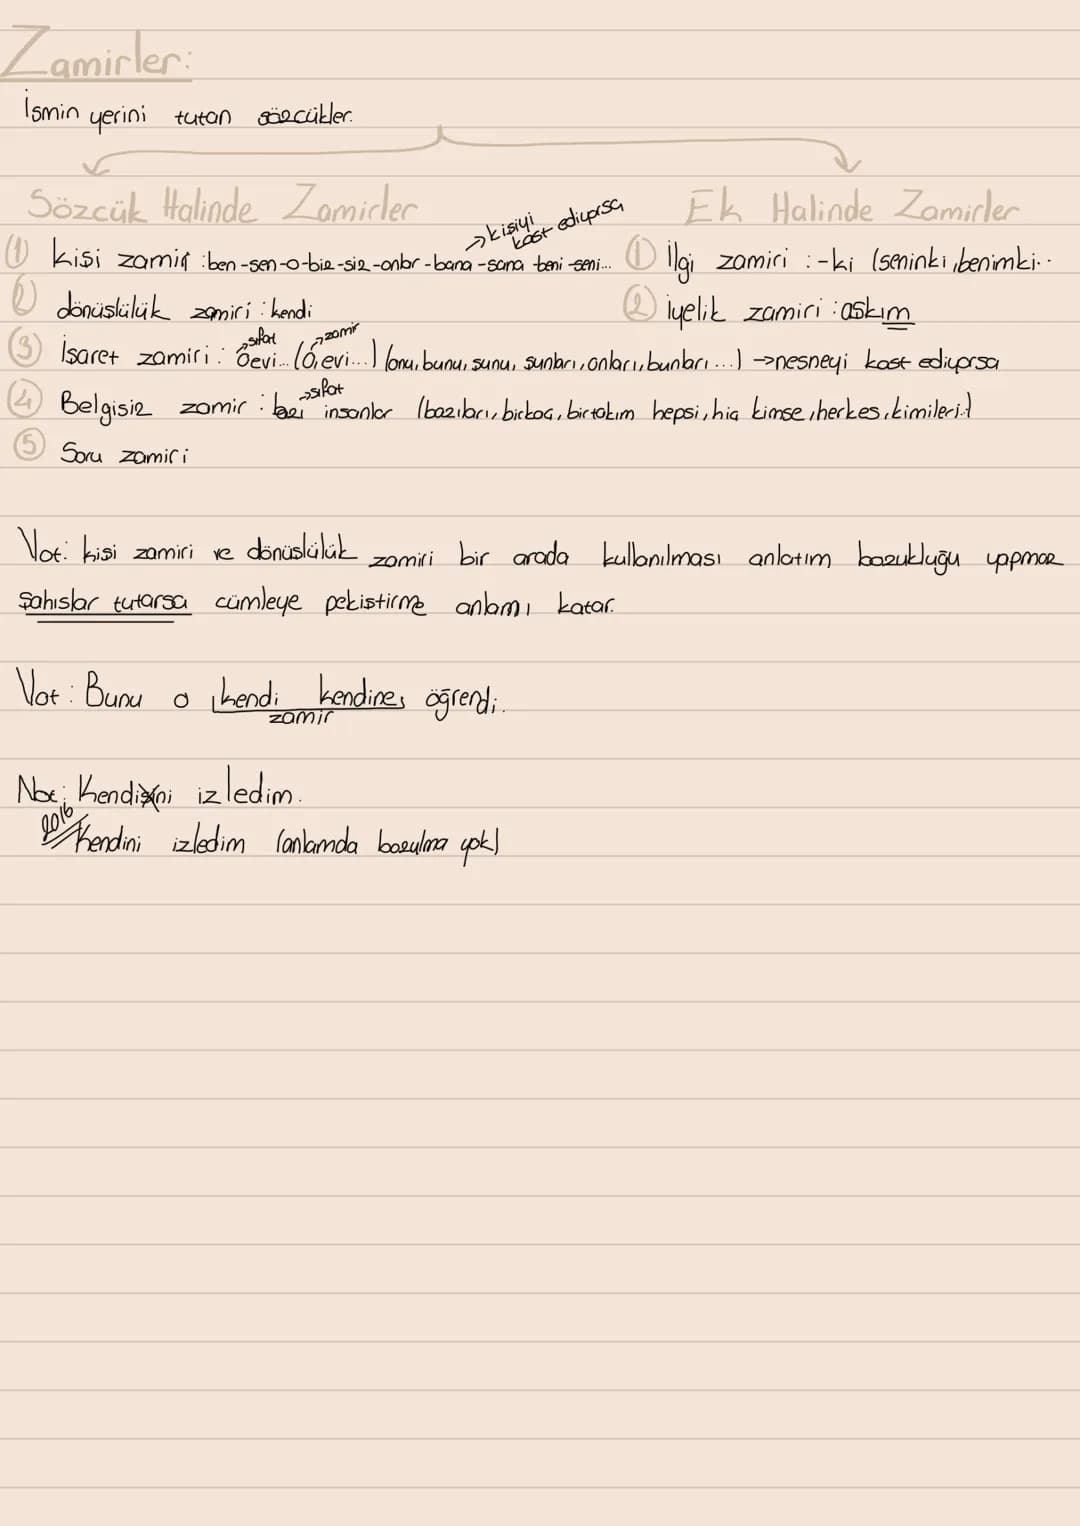 Zamirler:
İsmin yerini tutan sözcükler.
Sözcük Halinde Zamirler
Ek Halinde Zamirler
→kişiyi kast ediyorsa
① kişi zamiri :ben-sen-o-biz-siz-onlar-bana-sana-beni-seni...
① İlgi zamiri :-ki (seninki,benimki..
② dönüşlülük zamiri : kendi
② İyelik zamiri : aşkım
→sıfat →zamir
③ İşaret zamiri : O evi... (O, evi...) (onu, bunu, şunu, şunları, onları, bunları ...) →nesneyi kast ediyorsa
→sıfat
④ Belgisiz zamir : bazı insanlar (bazıları, birkaç, birtakım hepsi, hiç kimse, herkes, kimileri..)
⑤ Soru zamiri
Not: kişi zamiri ve dönüşlülük zamiri bir arada kullanılması anlatım bozukluğu yapmaz
şahıslar tutarsa cümleye pekiştirme anlamı katar.
Not : Bunu o kendi kendine, öğrendi.
zamir
Not: Kendisini izledim.
2016 Kendini izledim (anlamda bozulma yok)